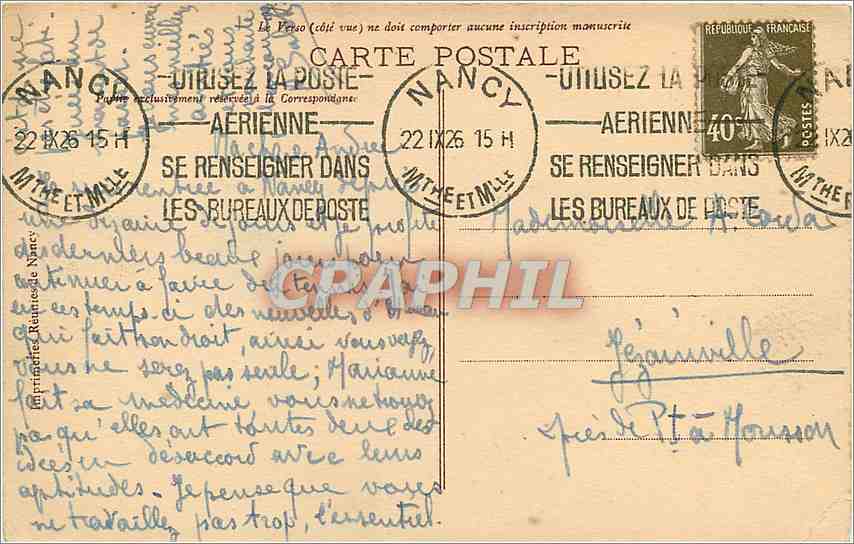 Le Verso (côté vue) ne doit comporter aucune inscription manuscrite
CARTE POSTALE
Partie exclusivement réservée à la Correspondance
RÉPUBLIQUE FRANÇAISE
40c
POSTES
NANCY
22 IX26 15 H
MTHE ET MLLE
UTILISEZ LA POSTE
AÉRIENNE
SE RENSEIGNER DANS
LES BUREAUX DE POSTE
NANCY
22 IX26 15 H
MTHE ET MLLE
UTILISEZ LA POSTE
AÉRIENNE
SE RENSEIGNER DANS
LES BUREAUX DE POSTE
Ma chère Andrée
rentrée à Nancy depuis
une dizaine de jours et je profite
des derniers beaux jours pour
continuer à faire du tennis
en ces temps-ci des nouvelles
qui fait son droit, ainsi vous voyez,
vous ne serez pas seule; Marianne
fait sa médecine vous ne trouvez
pas qu'elles ont toutes deux des
idées en désaccord avec leurs
aptitudes. Je pense que vous
ne travaillez pas trop, l'essentiel
Mademoiselle A.
Jézainville
près de Pt à Mousson
Imprimeries Réunies de Nancy
CPAPHIL